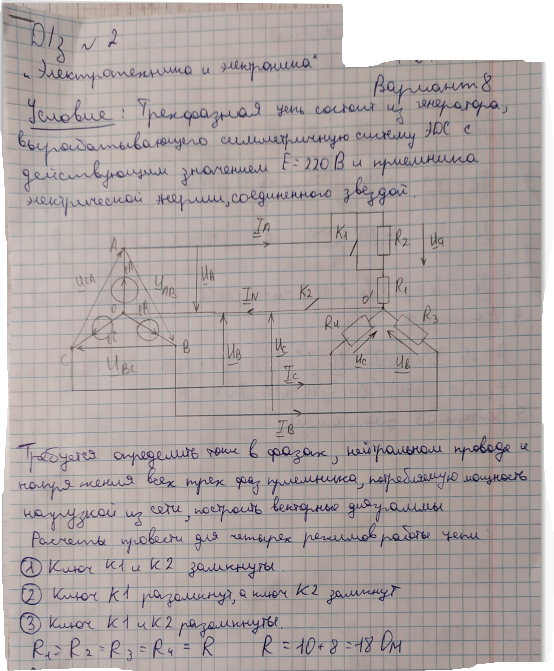 Д/з № 2
„Электротехника и электроника“
Вариант 8
Условие: Трехфазная цепь состоит из генератора,
вырабатывающего симметричную систему ЭДС с
действующим значением E=220 В и приемника
электрической энергии, соединенного звездой.
IA
A
K1
R2
Ua
UCA
eA
UAB
UA
IN
K2
R1
O
O'
eC
eB
R4
R3
C
B
UBC
UB
UC
Uc
Ub
IC
IB
Требуется определить токи в фазах, нейтральном проводе и
напряжения всех трех фаз приемника, потребляемую мощность
нагрузкой из сети, построить векторные диаграммы
Расчеты провести для четырех режимов работы цепи
① Ключ K1 и K2 замкнуты.
② Ключ K1 разомкнут, а ключ K2 замкнут
③ Ключ K1 и K2 разомкнуты.
R1=R2=R3=R4=R R=10+8=18 Ом